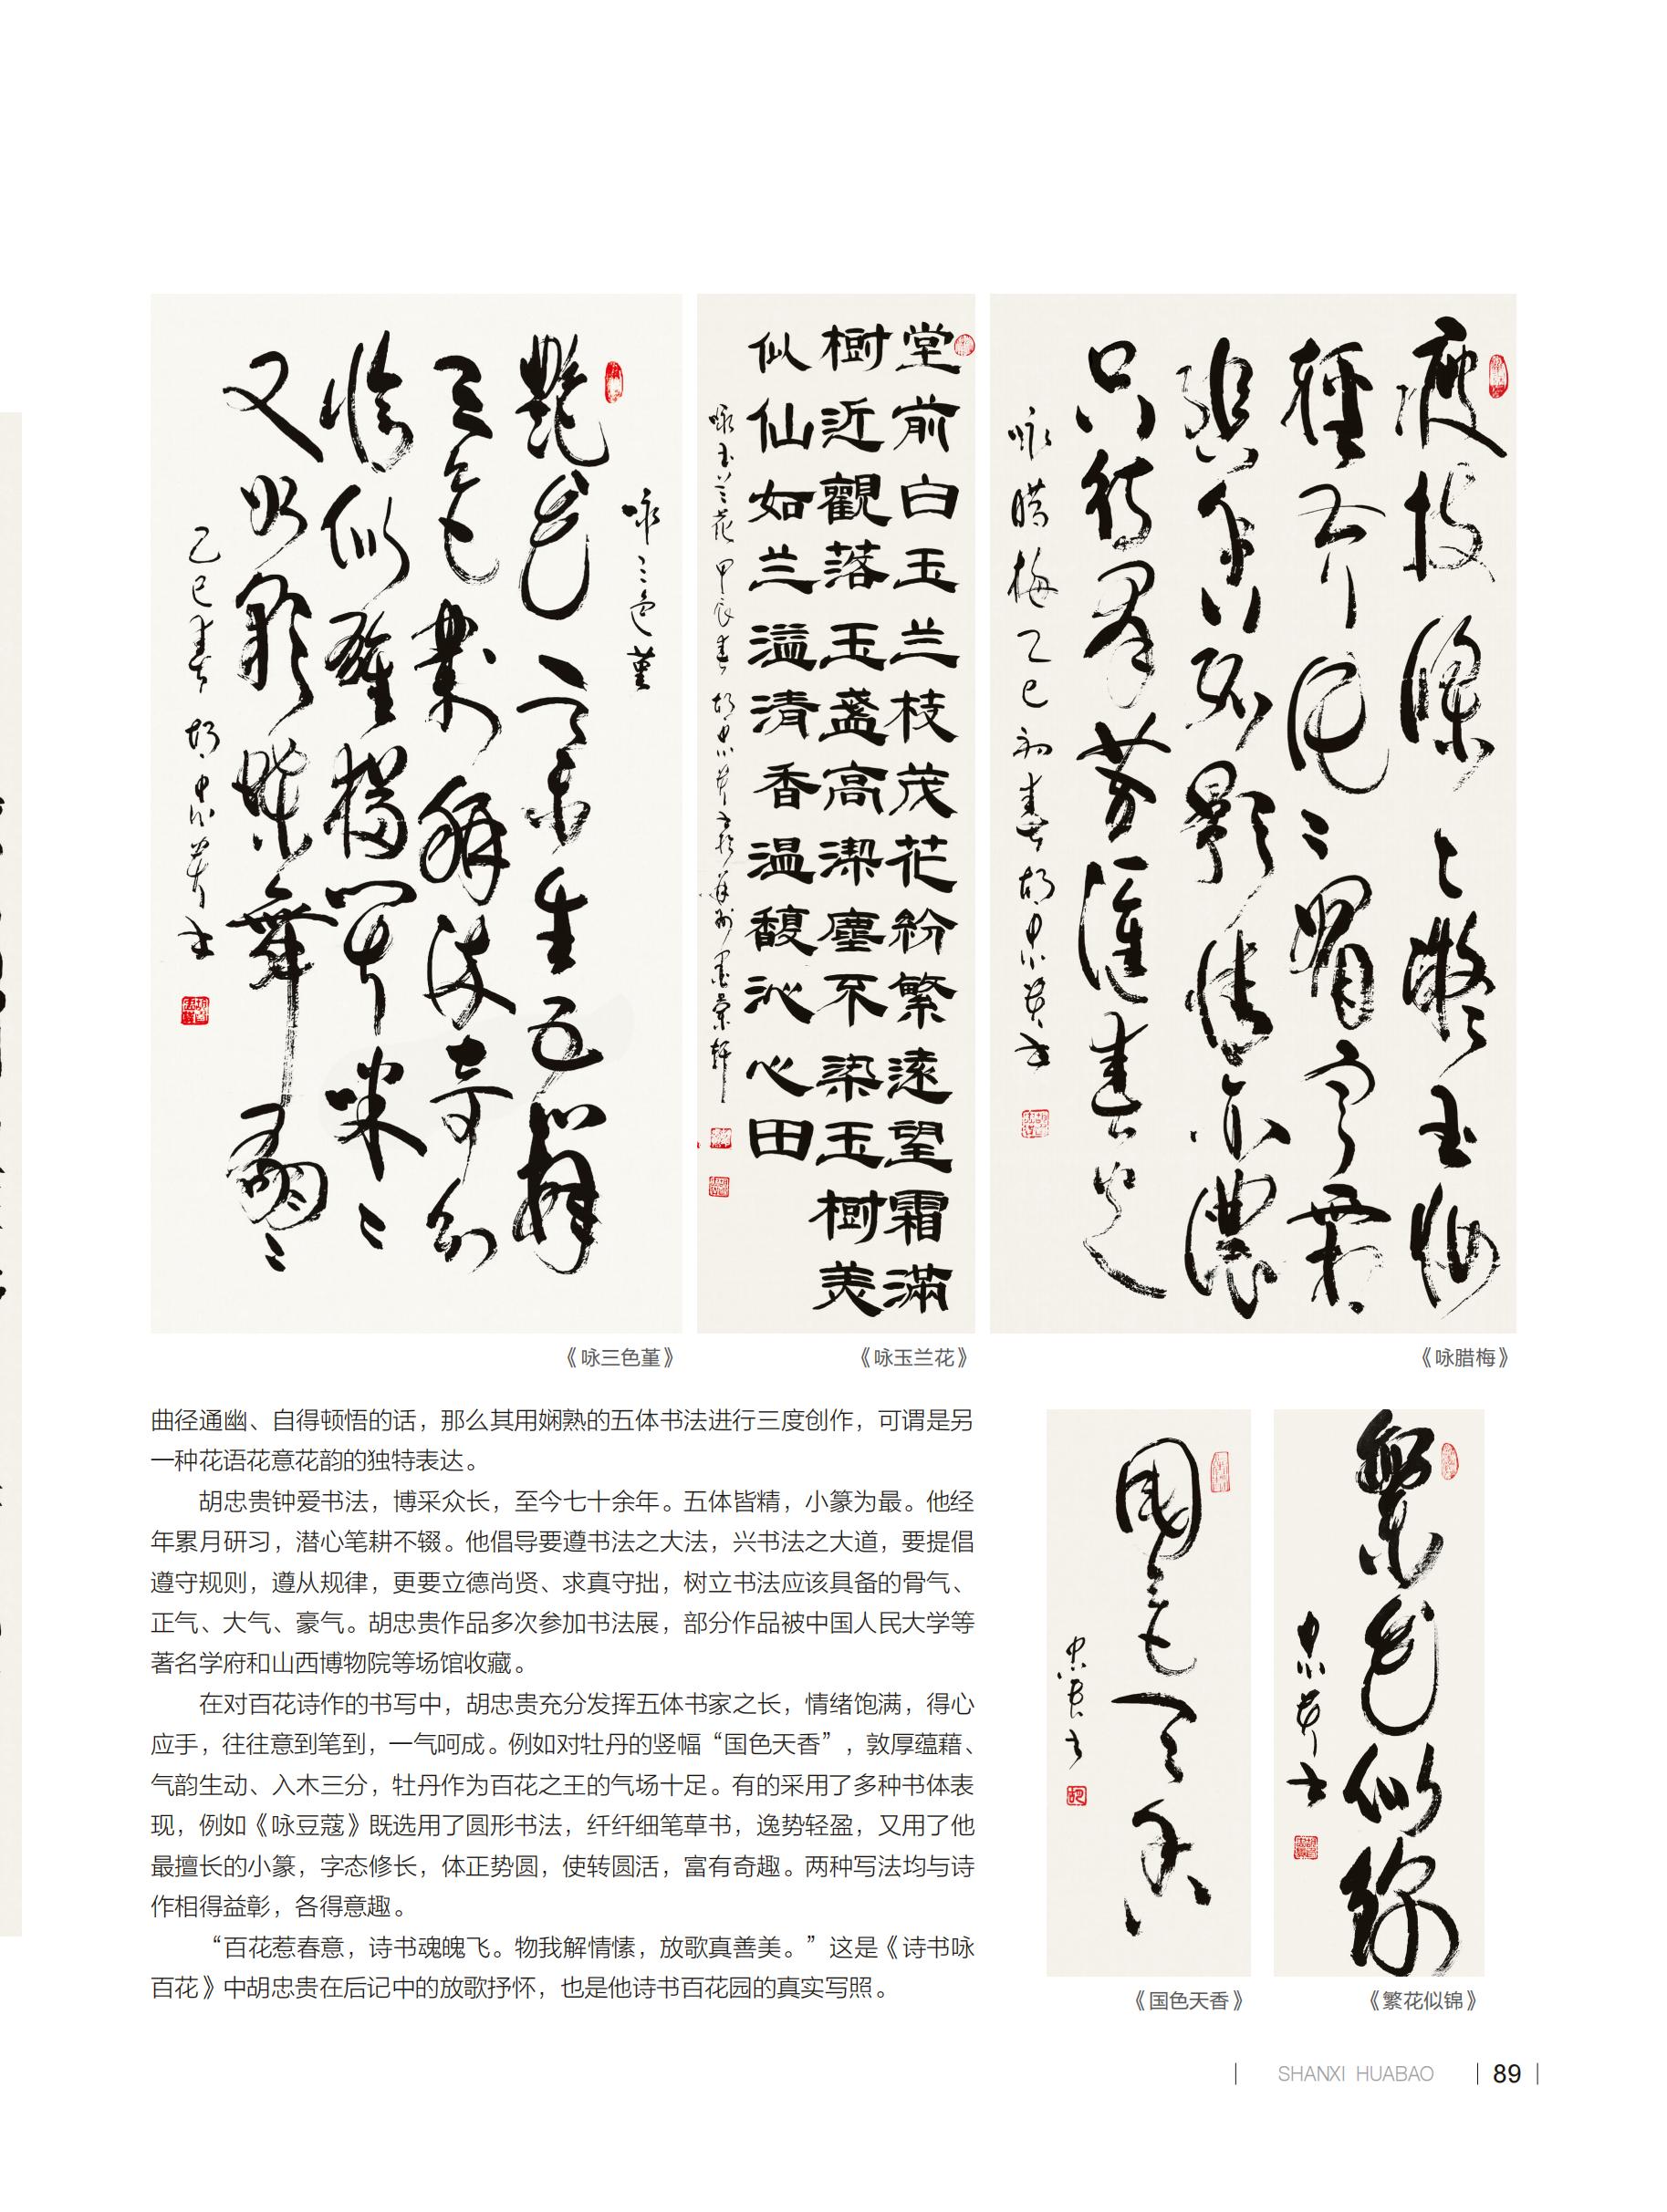 咏三色堇
艷花
三色
恰似 咪々
又如彩蝶舞翩々
乙巳春 胡忠贵书
堂前白玉兰枝茂花紛繁遠望霜滿
樹近觀落玉盞高潔塵不染玉樹美
似仙如兰溢清香温馥沁心田
咏玉兰花 甲辰春 胡忠贵书于并州
瘦枝條々凝玉
影情亦濃
只待群芳匯春
咏腊梅 乙巳初春 胡忠贵书
《咏三色堇》
《咏玉兰花》
《咏腊梅》
曲径通幽、自得顿悟的话，那么其用娴熟的五体书法进行三度创作，可谓是另
一种花语花意花韵的独特表达。
胡忠贵钟爱书法，博采众长，至今七十余年。五体皆精，小篆为最。他经
年累月研习，潜心笔耕不辍。他倡导要遵书法之大法，兴书法之大道，要提倡
遵守规则，遵从规律，更要立德尚贤、求真守拙，树立书法应该具备的骨气、
正气、大气、豪气。胡忠贵作品多次参加书法展，部分作品被中国人民大学等
著名学府和山西博物院等场馆收藏。
在对百花诗作的书写中，胡忠贵充分发挥五体书家之长，情绪饱满，得心
应手，往往意到笔到，一气呵成。例如对牡丹的竖幅“国色天香”，敦厚蕴藉、
气韵生动、入木三分，牡丹作为百花之王的气场十足。有的采用了多种书体表
现，例如《咏豆蔻》既选用了圆形书法，纤纤细笔草书，逸势轻盈，又用了他
最擅长的小篆，字态修长，体正势圆，使转圆活，富有奇趣。两种写法均与诗
作相得益彰，各得意趣。
“百花惹春意，诗书魂魄飞。物我解情愫，放歌真善美。”这是《诗书咏
百花》中胡忠贵在后记中的放歌抒怀，也是他诗书百花园的真实写照。
國色天香
忠贵书
繁花似锦
忠贵书
《国色天香》
《繁花似锦》
SHANXI HUABAO
89